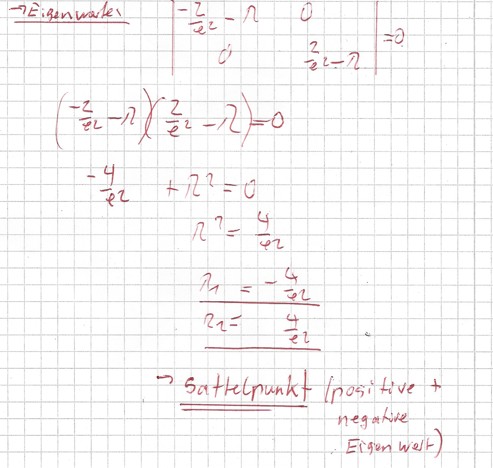 → Eigenwerte | -2/e² - λ 0 |
| 0 2/e² - λ | = 0
(-2/e² - λ)(2/e² - λ) = 0
-4/e² + λ² = 0
λ² = 4/e²
λ₁ = -4/e²
λ₂ = 4/e²
→ Sattelpunkt (positive +
negative
Eigenwert)